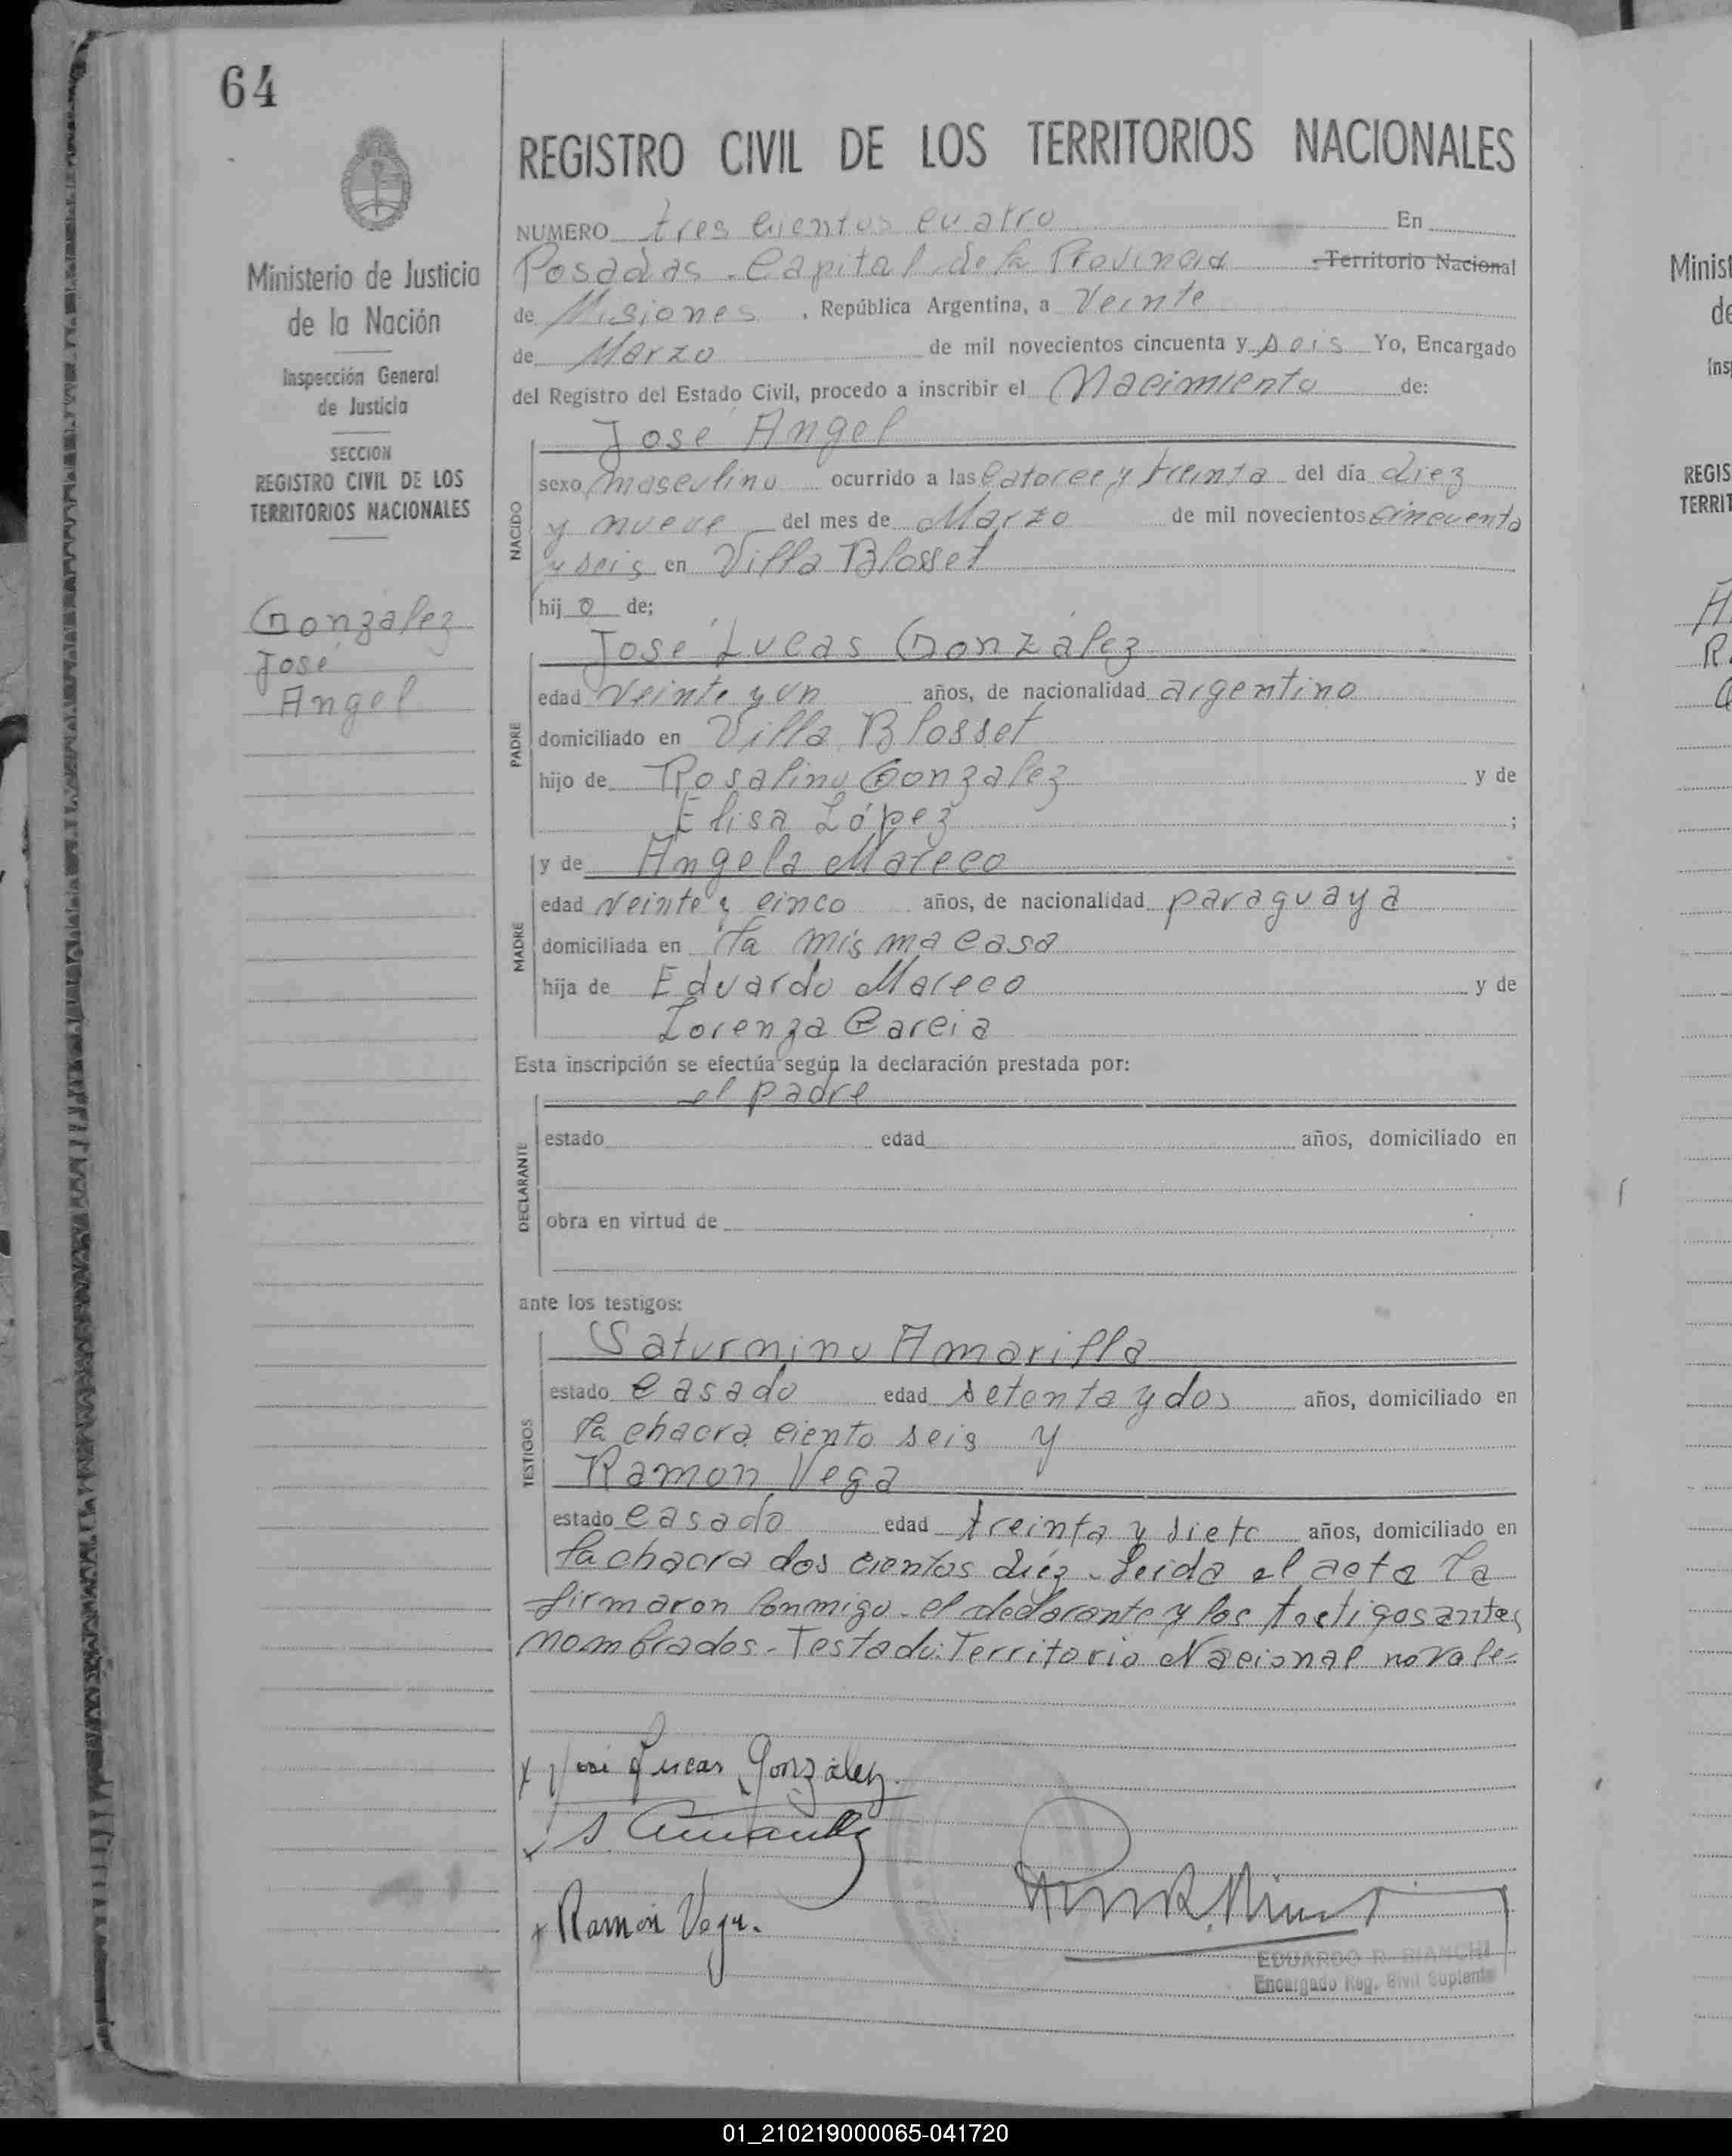 64
REGISTRO CIVIL DE LOS TERRITORIOS NACIONALES
Ministerio de Justicia
de la Nación
Inspección General
de Justicia
SECCION
REGISTRO CIVIL DE LOS
TERRITORIOS NACIONALES
González
José
Angel
NUMERO tres cientos cuatro En
Posadas - Capital de la Provincia Territorio Nacional
de Misiones, República Argentina, a Veinte
de Marzo de mil novecientos cincuenta y seis Yo, Encargado
del Registro del Estado Civil, procedo a inscribir el Nacimiento de:
NACIDO
José Angel
sexo masculino ocurrido a las Catorce y treinta del día diez
y nueve del mes de Marzo de mil novecientos cincuenta
y seis en Villa Blosset
hij o de;
PADRE
José Lucas González
edad veinte y un años, de nacionalidad argentino
domiciliado en Villa Blosset
hijo de Rosalino Gonzalez y de
Elisa López ;
MADRE
y de Angela Mareco
edad veinte y cinco años, de nacionalidad paraguaya
domiciliada en la misma casa
hija de Eduardo Mareco y de
Lorenza Garcia
Esta inscripción se efectúa según la declaración prestada por:
DECLARANTE
el padre
estado edad años, domiciliado en
obra en virtud de
ante los testigos:
TESTIGOS
Saturnino Amarilla
estado casado edad setenta y dos años, domiciliado en
la chacra ciento seis y
Ramon Vega
estado casado edad treinta y siete años, domiciliado en
la chacra dos cientos diéz - Leida el acta la
firmaron conmigo - el declarante y los testigos antes
nombrados - Testado: Territorio Nacional no vale=
x José Lucas González.
x S Amarilla
x Ramón Vega.
EDUARDO R. BIANCHI
Encargado Reg. Civil Suplente
Minist
de
Ins
REGIS
TERRIT
01_210219000065-041720